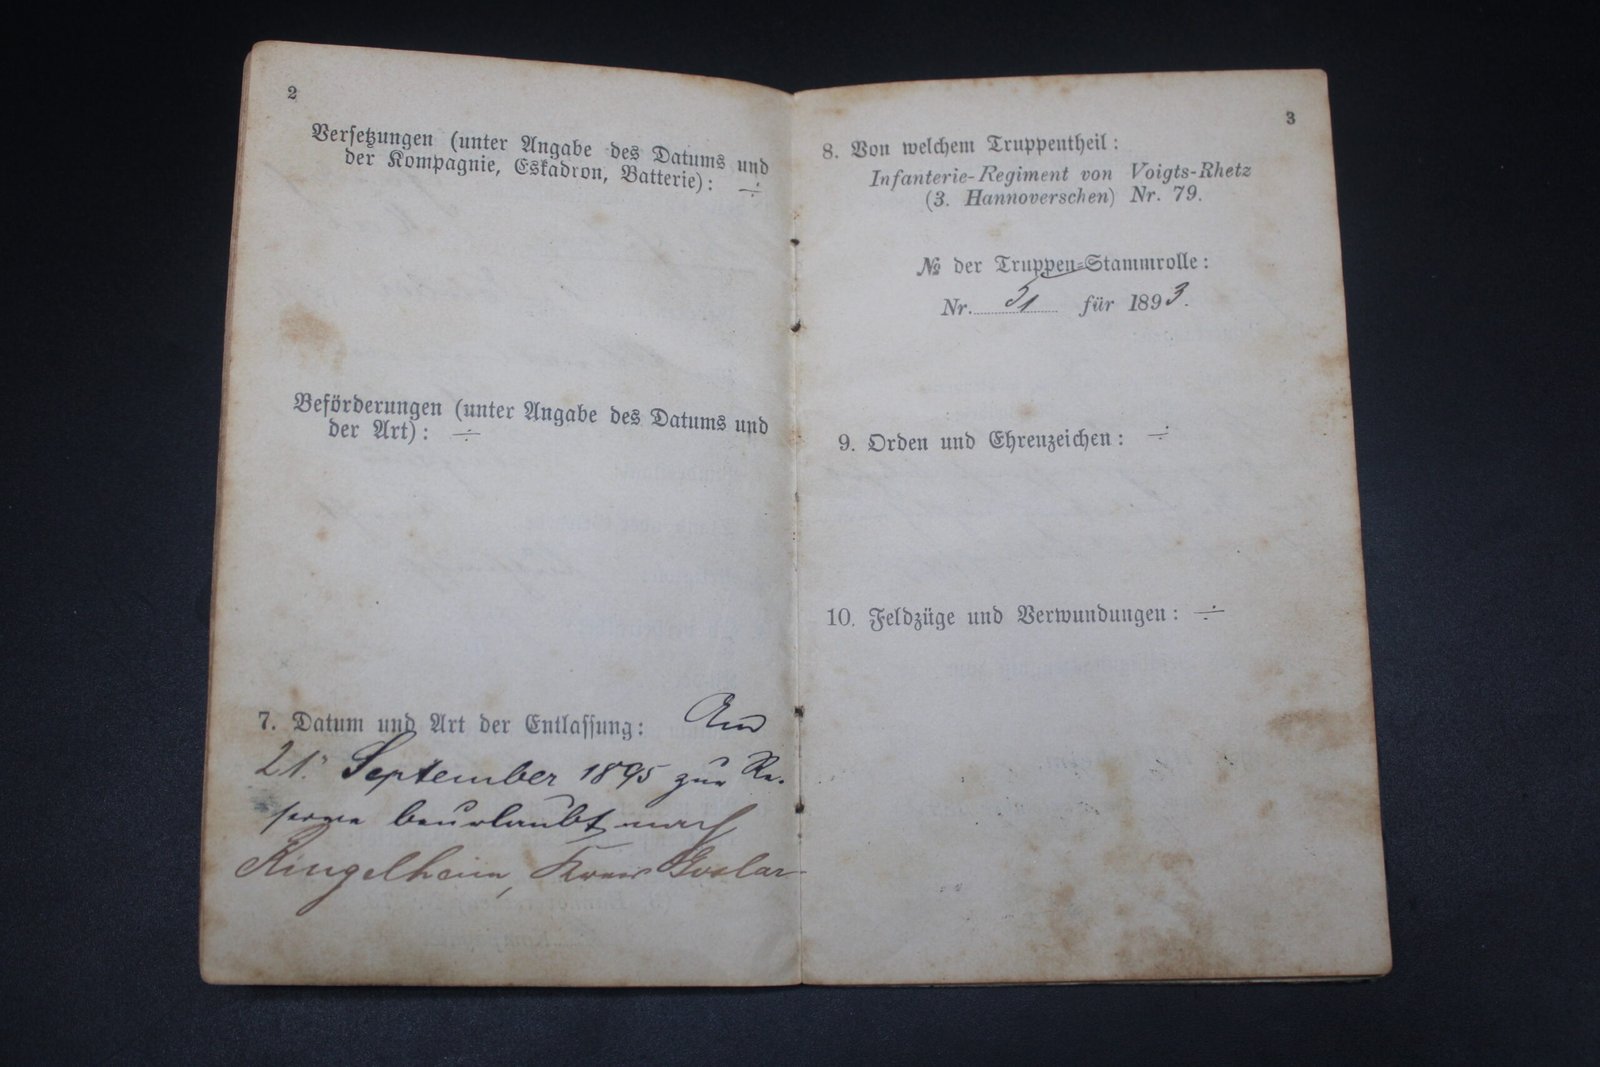 2
Versetzungen (unter Angabe des Datums und
der Kompagnie, Eskadron, Batterie): ÷
Beförderungen (unter Angabe des Datums und
der Art): ÷
7. Datum und Art der Entlassung: Am
21. September 1895 zur Re-
serve beurlaubt nach
Ringelheim, Kreis Goslar.
3
8. Von welchem Truppentheil:
Infanterie-Regiment von Voigts-Rhetz
(3. Hannoverschen) Nr. 79.
№ der Truppen-Stammrolle:
Nr. 51 für 1893.
9. Orden und Ehrenzeichen: ÷
10. Feldzüge und Verwundungen: ÷